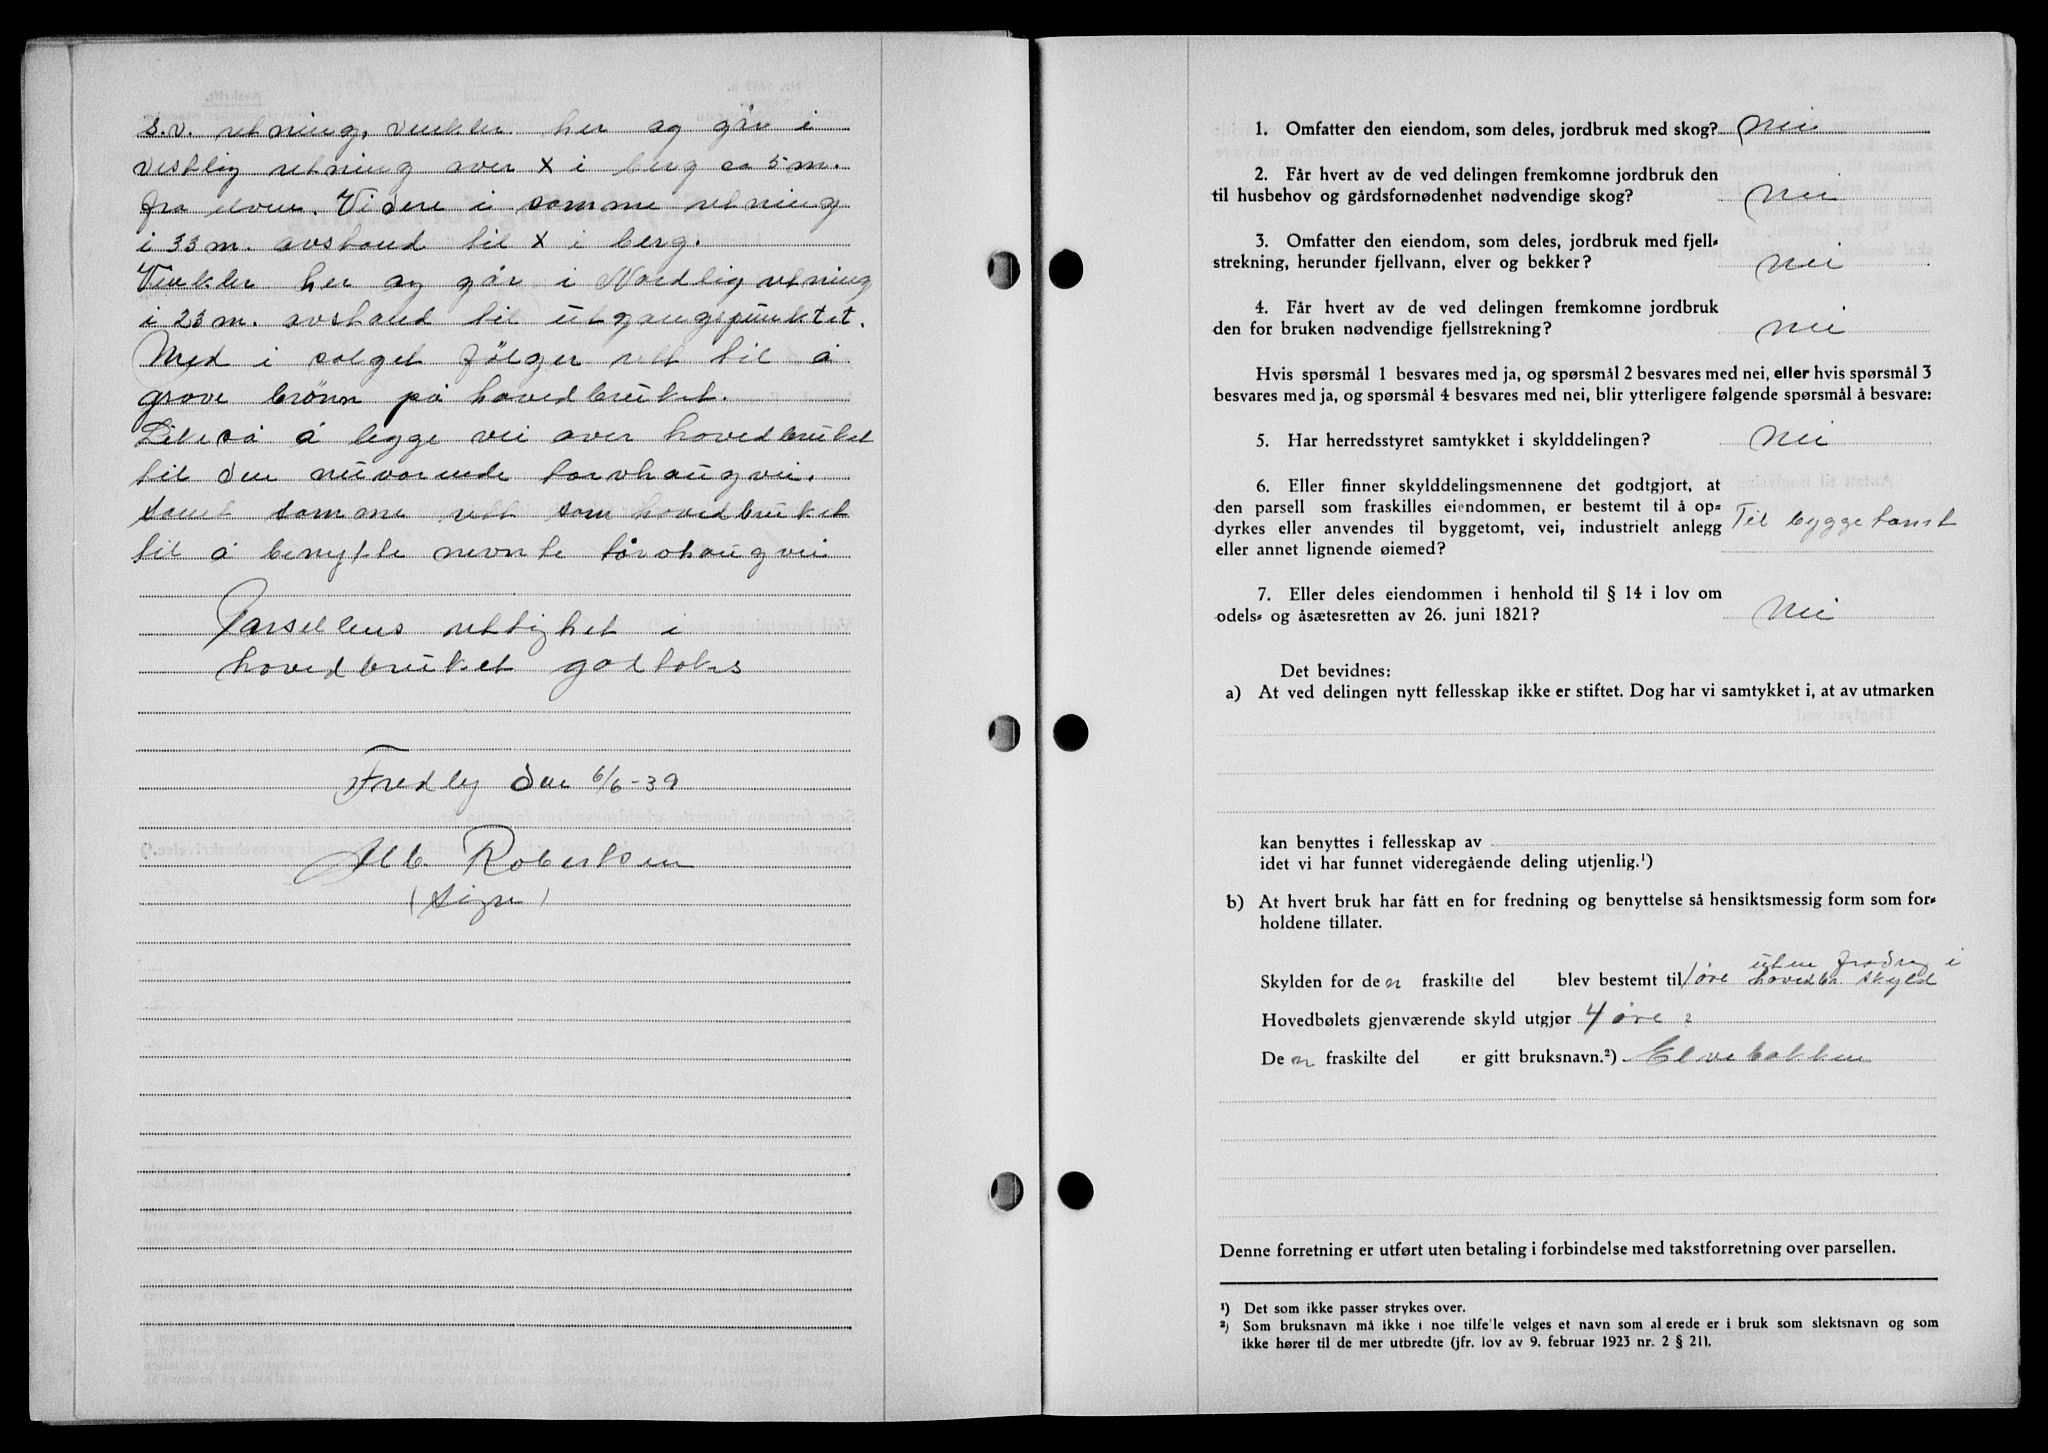 s.v. retning, vinkler her og går i
vestlig retning over x i berg ca 5 m.
fra elven. Videre i samme retning
i 33 m. avstand til x i berg.
Vinkler her og går i Nordlig retning
i 23 m. avstand til utgangspunktet.
Med i salget følger rett til å
grave brønn på hovedbruket.
Likeså å legge vei over hovedbruket
til den nuværende torvhaugvei.
samt samme rett som hovedbruket
til å benytte nevnte torvhaugvei
Parsellens rettighet i
hovedbruket godtaes
Fredly den 6/6-39
Alb Robertsen
(sign)
1. Omfatter den eiendom, som deles, jordbruk med skog? Nei
2. Får hvert av de ved delingen fremkomne jordbruk den
til husbehov og gårdsfornødenhet nødvendige skog? Nei
3. Omfatter den eiendom, som deles, jordbruk med fjell-
strekning, herunder fjellvann, elver og bekker? Nei
4. Får hvert av de ved delingen fremkomne jordbruk
den for bruken nødvendige fjellstrekning? Nei
Hvis spørsmål 1 besvares med ja, og spørsmål 2 besvares med nei, eller hvis spørsmål 3
besvares med ja, og spørsmål 4 besvares med nei, blir ytterligere følgende spørsmål å besvare:
5. Har herredsstyret samtykket i skylddelingen? Nei
6. Eller finner skylddelingsmennene det godtgjort, at
den parsell som fraskilles eiendommen, er bestemt til å op-
dyrkes eller anvendes til byggetomt, vei, industrielt anlegg Til byggetomt
eller annet lignende øiemed?
7. Eller deles eiendommen i henhold til § 14 i lov om
odels- og åsætesretten av 26. juni 1821? Nei
Det bevidnes:
a) At ved delingen nytt fellesskap ikke er stiftet. Dog har vi samtykket i, at av utmarken
kan benyttes i fellesskap av
idet vi har funnet videregående deling utjenlig.¹)
b) At hvert bruk har fått en for fredning og benyttelse så hensiktsmessig form som for-
holdene tillater.
uten fradrag i
Skylden for den fraskilte del blev bestemt til 1 øre hovedbr skyld
Hovedbølets gjenværende skyld utgjør 4 øre
Den fraskilte del er gitt bruksnavn.²) Elvebakken
Denne forretning er utført uten betaling i forbindelse med takstforretning over parsellen.
¹) Det som ikke passer strykes over.
²) Som bruksnavn må ikke i noe tilfe'le velges et navn som al erede er i bruk som slektsnavn og som
ikke hører til de mer utbredte (jfr. lov av 9. februar 1923 nr. 2 § 21).